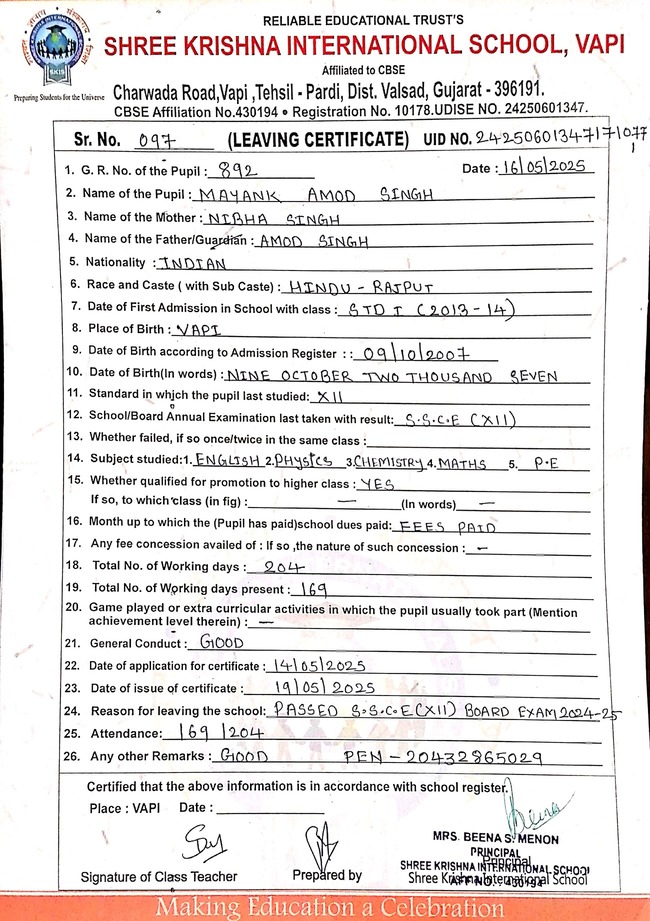 RELIABLE EDUCATIONAL TRUST'S
SHREE KRISHNA INTERNATIONAL SCHOOL, VAPI
Affiliated to CBSE
Preparing Students for the Universe
Charwada Road,Vapi ,Tehsil - Pardi, Dist. Valsad, Gujarat - 396191.
CBSE Affiliation No.430194 • Registration No. 10178.UDISE NO. 24250601347.
Sr. No. 097 (LEAVING CERTIFICATE) UID NO. 24250601347171077
1. G. R. No. of the Pupil : 892 Date : 16/05/2025
2. Name of the Pupil : MAYANK AMOD SINGH
3. Name of the Mother : NIBHA SINGH
4. Name of the Father/Guardian : AMOD SINGH
5. Nationality : INDIAN
6. Race and Caste ( with Sub Caste) : HINDU - RAJPUT
7. Date of First Admission in School with class : STD I (2013-14)
8. Place of Birth : VAPI
9. Date of Birth according to Admission Register : : 09/10/2007
10. Date of Birth(In words) : NINE OCTOBER TWO THOUSAND SEVEN
11. Standard in which the pupil last studied: XII
12. School/Board Annual Examination last taken with result: S.S.C.E (XII)
13. Whether failed, if so once/twice in the same class :
14. Subject studied:1. ENGLISH 2.PHYSICS 3.CHEMISTRY 4.MATHS 5. P.E
15. Whether qualified for promotion to higher class : YES
If so, to which class (in fig) : — (In words) —
16. Month up to which the (Pupil has paid)school dues paid: FEES PAID
17. Any fee concession availed of : If so ,the nature of such concession : —
18. Total No. of Working days : 204
19. Total No. of Working days present : 169
20. Game played or extra curricular activities in which the pupil usually took part (Mention
achievement level therein) : —
21. General Conduct : GOOD
22. Date of application for certificate : 14/05/2025
23. Date of issue of certificate : 19/05/2025
24. Reason for leaving the school: PASSED S.S.C.E(XII) BOARD EXAM 2024-25
25. Attendance: 169/204
26. Any other Remarks : GOOD PEN - 20432865029
Certified that the above information is in accordance with school register.
Place : VAPI Date :
MRS. BEENA S. MENON
PRINCIPAL
SHREE KRISHNA INTERNATIONAL SCHOOL
Principal
Signature of Class Teacher Prepared by Shree Krishna International School
AFF NO. : 430194
Making Education a Celebration